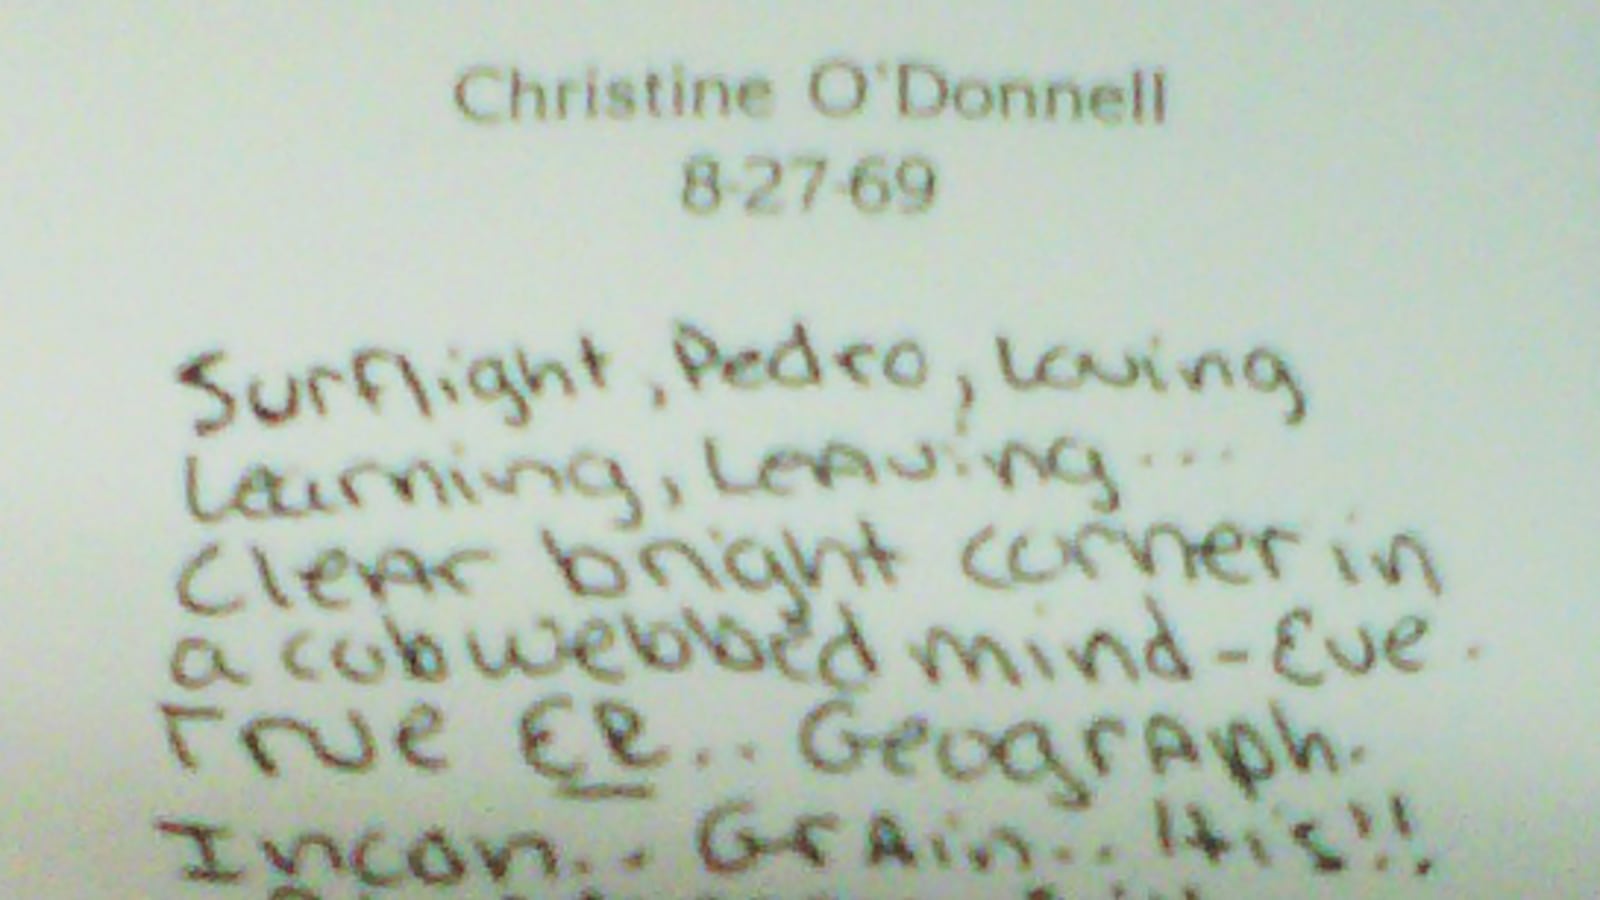 Christine O'Donnell
8-27-69
Surflight, Pedro, Loving
Learning, Leaving...
Clear bright corner in
a cobwebbed mind - Eve.
True EE... Geograph.
Incon... Grain... It is!!